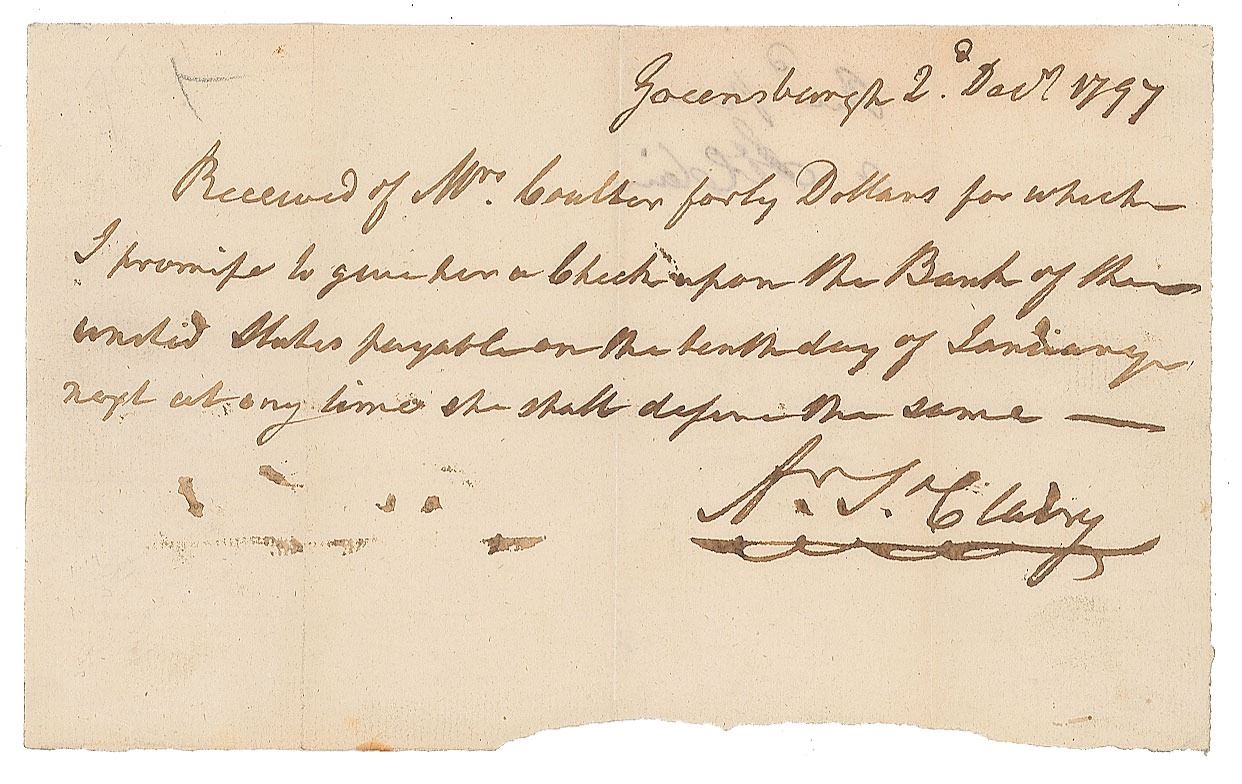 Greensburgh 2d. Decr 1797
Received of Mrs. Coulter forty Dollars for which
I promise to give her a Check upon the Bank of the
united States payable on the tenth day of January
next at any time she shall desire the same —
Ar. St. Clair